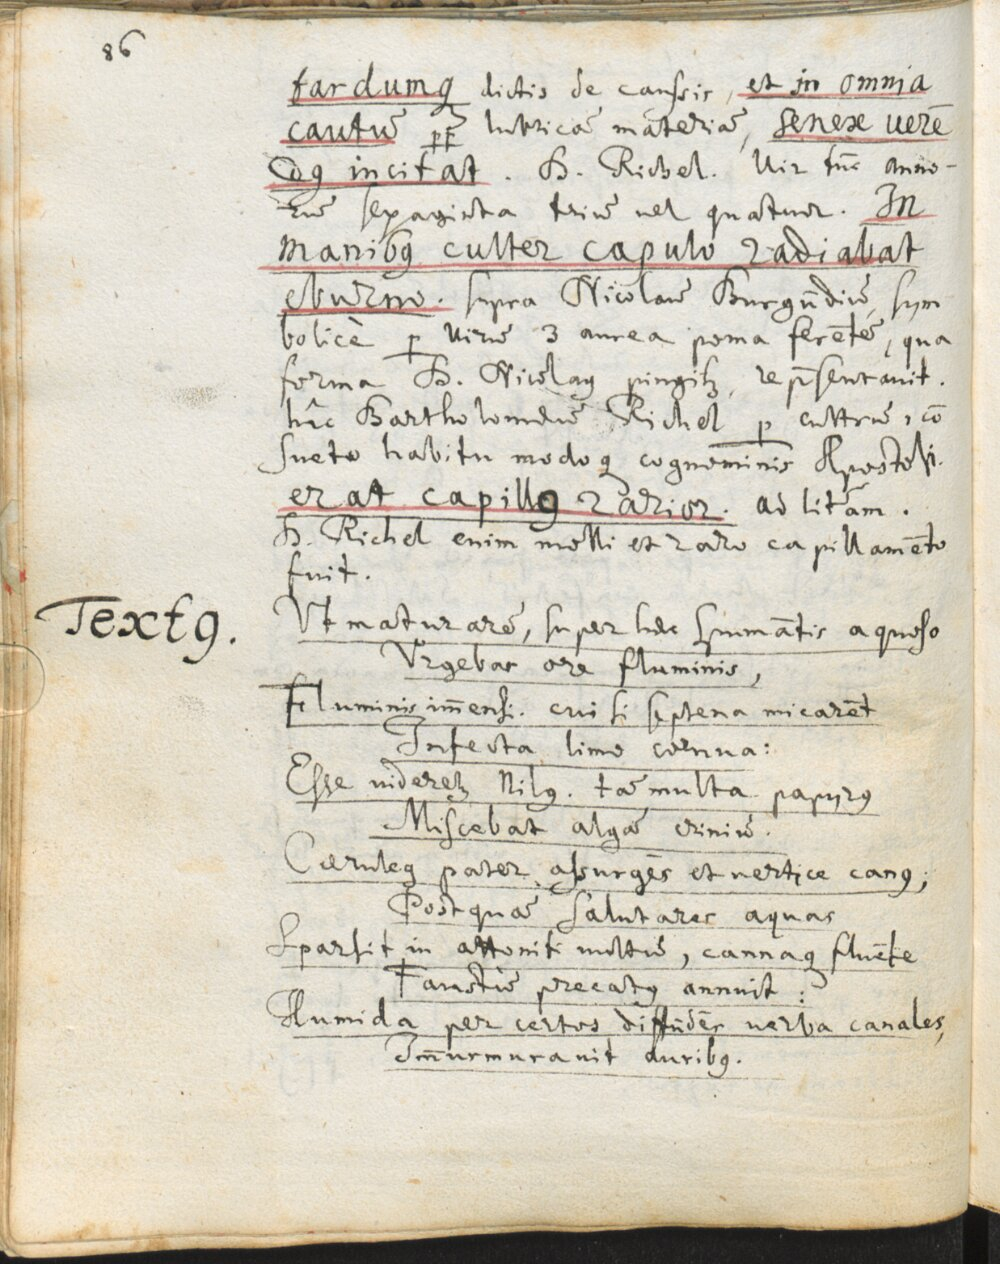 86
tardumq; dictis de caussis, et in omnia
cautū ꝓꝑ lubricā māteriā, senex uerē
dq; incitat. H. Richel. Vir tūc anno-
rū sepaginta triū uel quatuor. In
manibꝰ culter capulo radiabat
eburno. supra Nicolaū Burgūdiū, sym
bolicè ꝑ uirū 3 aurea poma ferētē, qua
forma H. Nicolaꝰ pingitꝫ, rep̄sentauit.
hîc Bartholomæū Richel ꝑ cultrū, cō
sueto habitu modoq; cognominis Apostoli.
erat capillꝰ rarior. ad lit̄am.
H. Richel enim molli et raro capillamēto
fuit.
Textꝰ. Vt maturarē, super hæc spumātis aquoso
Vrgebar ore fluminis,
Fluminis im̄ensi. cui si septena micarēt
Infecta limo cornua:
Esse uideretꝫ Nilꝰ. tā multa papyrꝰ
Miscebat algā criniū.
Cæruleꝰ pater assurgēs et uertice canꝰ;
Postquā salutares aquas
Sparsit in attoniti uultū, cannaq; fluēte
Faustū precatꝰ annuit:
Humida per certos diffūdēs uerba canales,
Im̄urmurauit auribꝰ.